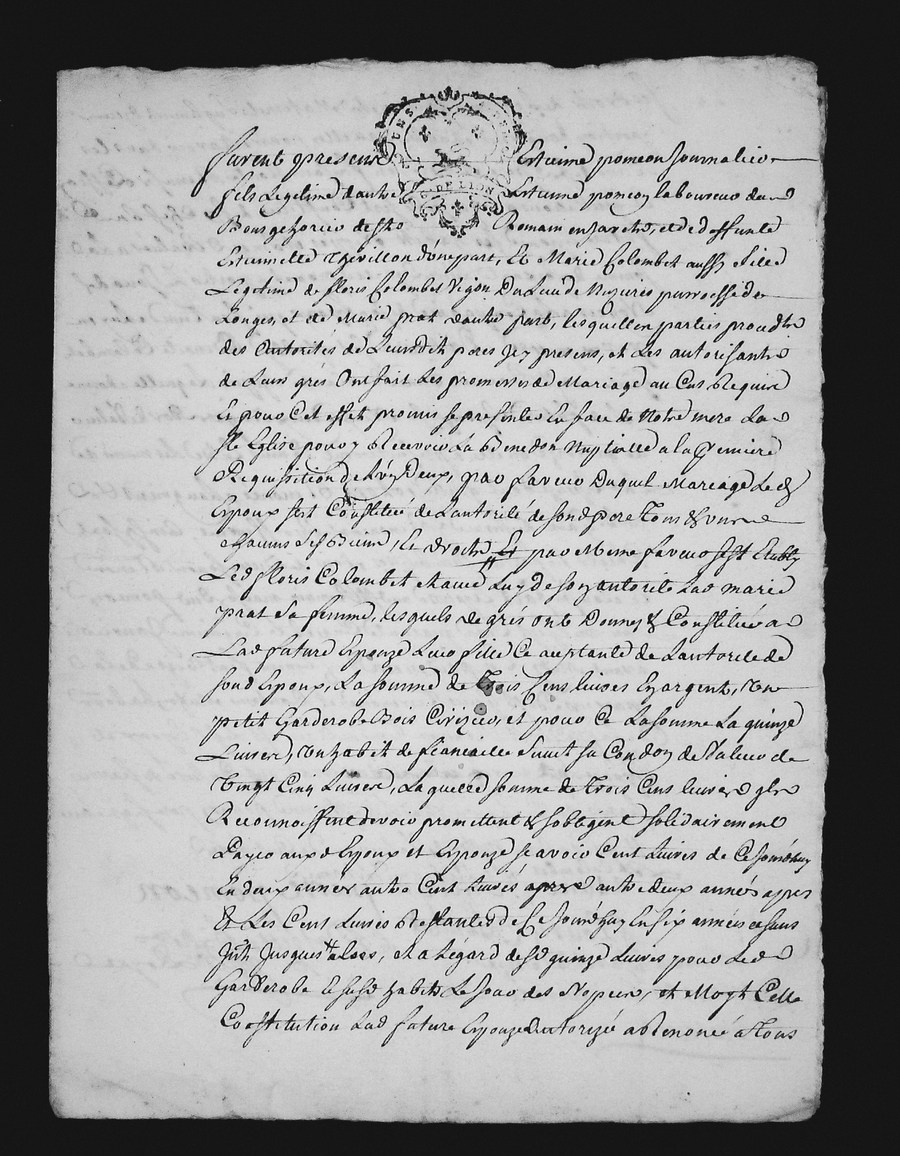 furent presens Estienne pomeon Journalier
fils Legitime d'autre Estienne pomeon laboureur du
Bourg de Ste Romain en Jarets, et de deffunte
Estiennette Thevillon d'une part, Et Marie Colombet aussy fille
Legitime de floris Colombet Vigon Du Lieu de parroesse de
Longes, et de Marie prat d'autre part, lesquelles parties
des Autorités de Leursdits peres Jcy presens, et Les autorisants
de Leurs grés Ont fait Les promesses de Mariage au Cas Requis
Et pour Cet effet promis se presenter En face de Notre mere La
Ste Eglise pour y Recevoir La Benedon Nuptialle a la premiere
Requisition de L'un Deux, par faveur Duquel Mariage Led
Epoux sest Constitué de L'autorité de sond pere Tous &
chacuns ses Biens, Et droits Et par Meme faveur sest Etably
Led floris Colombet et avec Luy de son autorité Lad marie
prat sa femme, lesquels de grés ont Donnés & Constitué a
Lad future Epouze Leur fille Ce acceptante de L'autorité de
sond Epoux, La somme de Trois Cens livres En argent, Un
petit Garderobe Bois Cirizier, et pour Ce La somme La quinze
Livres, Un habit de fiancaille suivt sa Condon de Valeur de
Vingt Cinq Livres, Laquelle somme de Trois Cens livres
Reconnoissent devoir promettent & sobligent solidairement
payer auxd Epoux et Epouze scavoir Cent Livres de Ce Jourdhuy
En deux années autre Cent Livres apres autre deux années apres
& Les Cent Livres Restantes de Ce Jourdhuy En six années sans
Jnth Jusques alors, et a L'égard desd quinze Livres pour Led
Garderobe Le jour des Nopces, et Moyt Cette
Constitution Lad future Epouze autorizé a Renoncé a Tous
DE LION